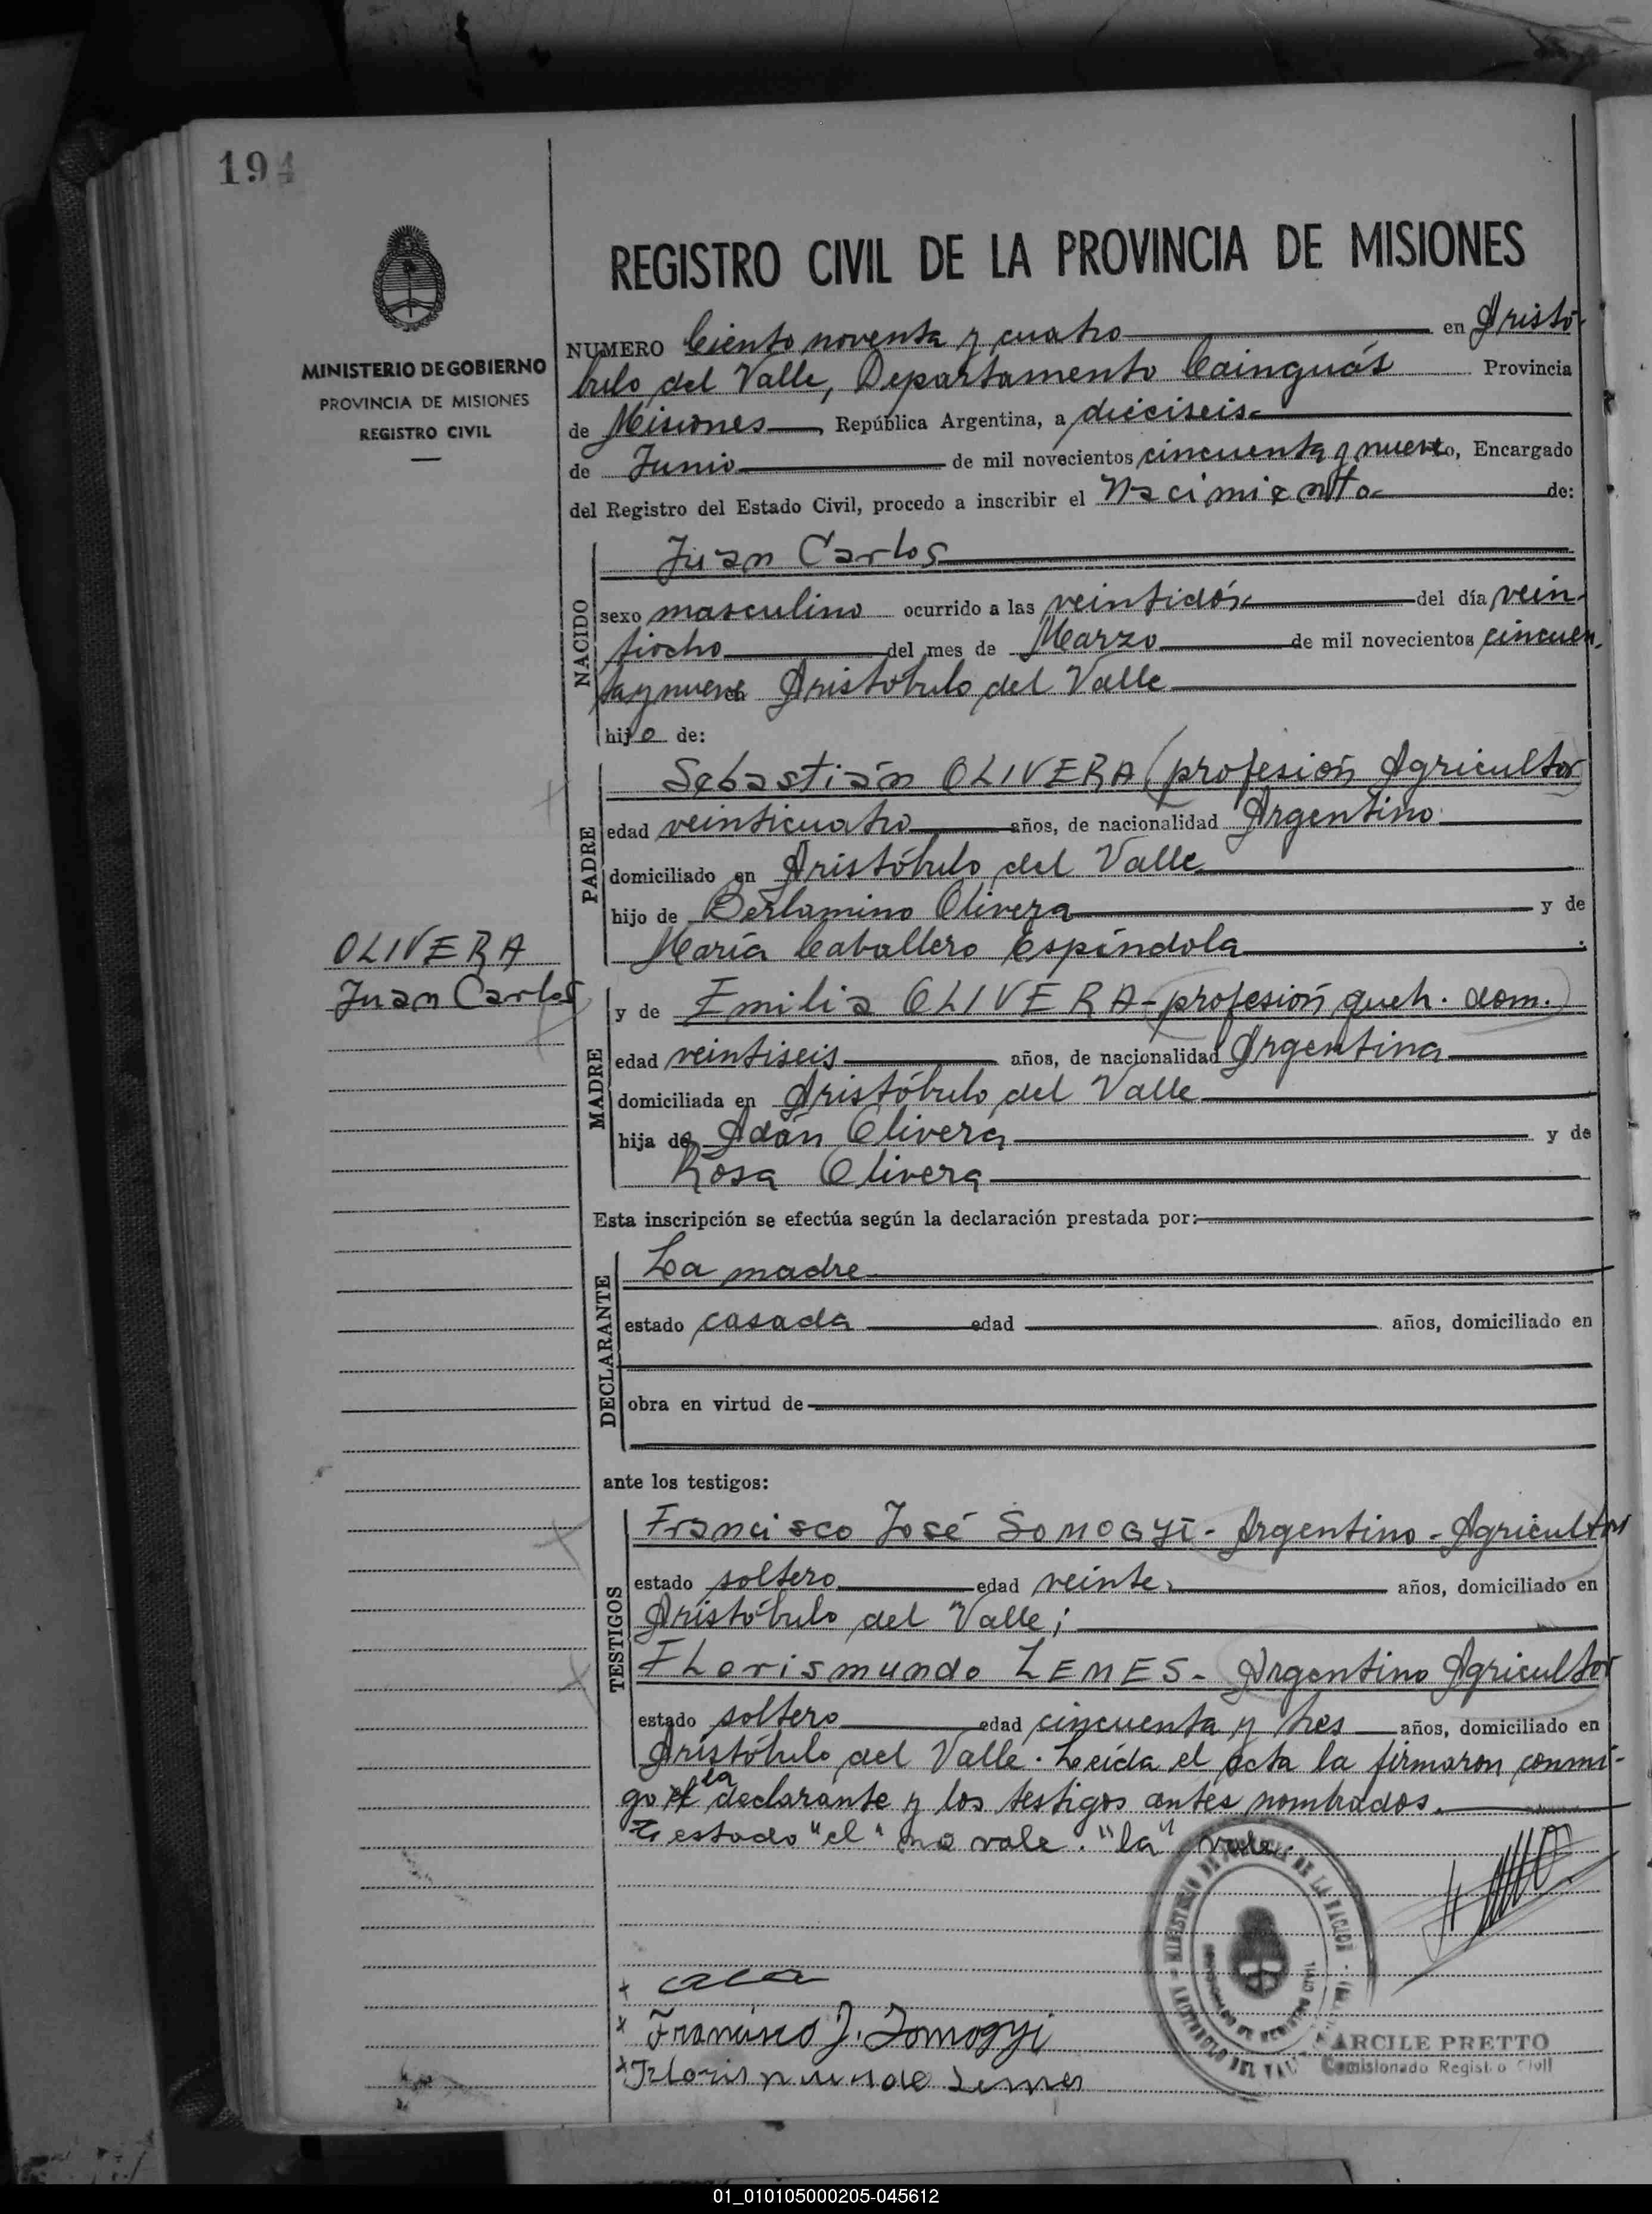 194
MINISTERIO DE GOBIERNO
PROVINCIA DE MISIONES
REGISTRO CIVIL
REGISTRO CIVIL DE LA PROVINCIA DE MISIONES
NUMERO Ciento noventa y cuatro en Aristó-
bulo del Valle, Departamento Cainguás Provincia
de Misiones, República Argentina, a dieciseis
de Junio de mil novecientos cincuenta y nueve, Encargado
del Registro del Estado Civil, procedo a inscribir el Nacimiento de:
NACIDO
Juan Carlos
sexo masculino ocurrido a las veintidós del día vein-
tiocho del mes de Marzo de mil novecientos cincuen-
ta y nueve en Aristóbulo del Valle
hijo de:
PADRE
Sebastián OLIVERA (profesión Agricultor)
edad veinticuatro años, de nacionalidad Argentino
domiciliado en Aristóbulo del Valle
hijo de Berlamino Olivera y de
María Caballero Espíndola
OLIVERA
Juan Carlos
MADRE
y de Emilia OLIVERA - profesión queh. dom.)
edad veintiseis años, de nacionalidad Argentina
domiciliada en Aristóbulo del Valle
hija de Adán Olivera y de
Rosa Olivera
Esta inscripción se efectúa según la declaración prestada por:
DECLARANTE
La madre
estado casada edad años, domiciliado en
obra en virtud de
ante los testigos:
TESTIGOS
Francisco José SOMOGYI - Argentino - Agricultor
estado soltero edad veinte años, domiciliado en
Aristóbulo del Valle;
FLorismundo LEMES - Argentino Agricultor
estado soltero edad cincuenta y tres años, domiciliado en
Aristóbulo del Valle. Leída el acta la firmaron conmi-
go el la declarante y los testigos antes nombrados.
Testado "el" no vale. "la" vale.
Francisco J. Somogyi
Florismundo Lemes
ARISTOBULO DEL VALLE
ARCILE PRETTO
Comisionado Registro Civil
01_010105000205-045612